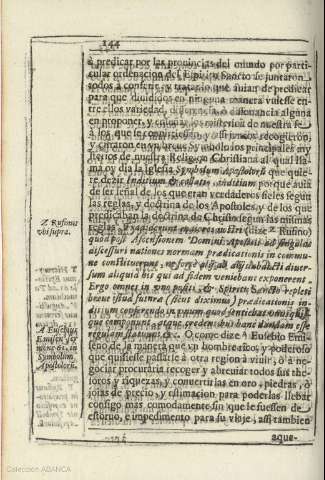 144
à predicar por las prouincias del mundo por parti-
cular ordenacion del Espiritu Sancto se juntaron
todos à conferir, y tratar lo que auian de predicar
para que diuididos en ninguna manera vuiesse en-
tre ellos variedad, diferencia, o disonancia alguna
en proponer, y enseñar los misterios de nuestra fe
à los que se conuirtiessen, y assi mismo recogieron,
y cifraron en vn breue Symbolo los principales my
sterios de nuestra Religion Christiana al qual lla-
ma oy dia la Iglesia, Symbolum Apostolorũ que quie-
re dezir Indicium collatio, inditium porque auia
de ser señal de los que eran verdaderos fieles segun
las reglas, y doctrina de los Apostoles, y de los que
predicaban la doctrina de Christo segun las mismas
reglas. Tradiderunt maiores nostri (dize z Rufino)
quod post Ascensionem Domini Apostoli ad singulas
discessuri nationes normam prædicationis in commu-
ne constituerunt, ne forte alius alijs abducti diuer-
sum aliquid his qui ad fidem veniebant exponerent.
Ergo omnes in vno positi, & Spiritu Sancto repleti
breue istud futuræ (sicut diximus) prædicationis in-
ditium conferendo in vnum quod sentiebat
componunt, atque credentibus hanc dandam esse
regulam statuunt &c. O como dize A Eusebio Emi-
seno de la manera que vn hombre rico, y poderoso
que quisiesse passarse à otra region à viuir, ò à ne-
gociar procuraria recoger y abreuiar todos sus the-
soros y riquezas, y conuertirlas en oro, piedras, ò
joias de precio, y estimacion para poderlas lleuar
consigo mas comodamente sin que le fuessen de
estoruo, e impedimento para su viaje, assi tambien
aque-
Z Rufinus
vbi supra.
A Eusebius
Emissen'
Symbolum
Apostolorũ.
Colección ABANCA